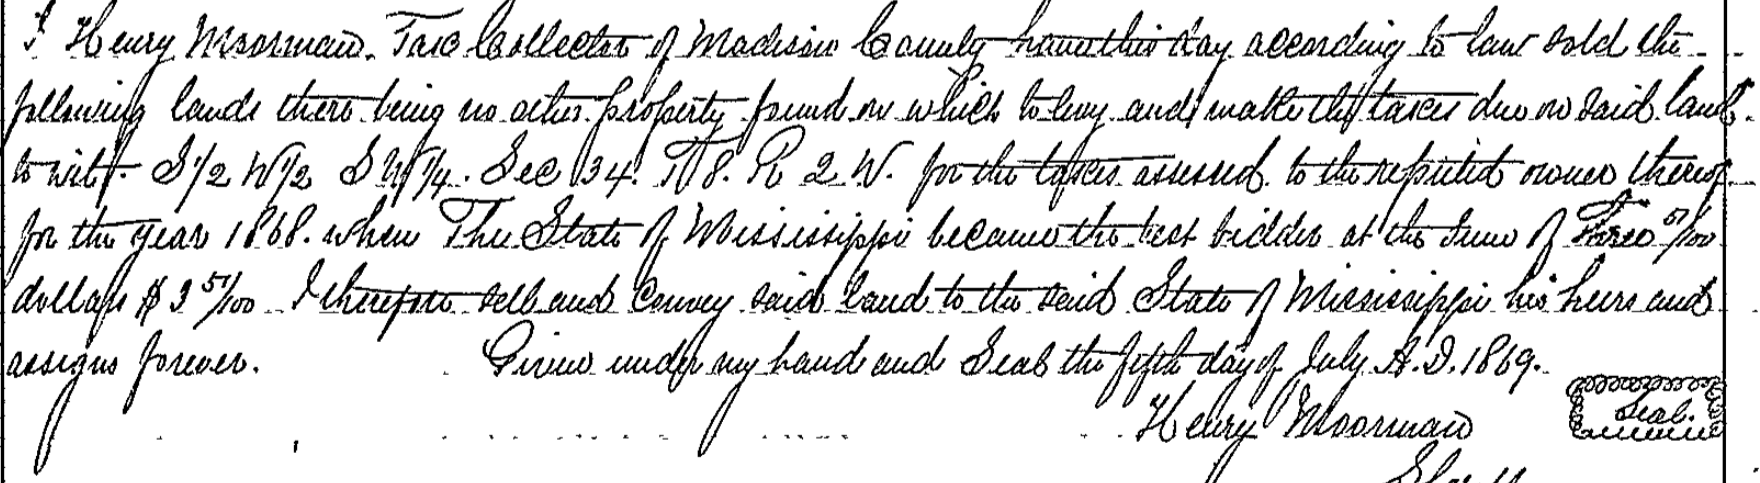 I Henry Moorman. Tax Collector of Madison County have this day according to law sold the
following lands there being no other property found on which to levy and make the taxes due on said land.
to wit. S 1/2 W 1/2 S W 1/4. Sec 34. T 8. R 2 W. for the taxes assessed to the reputed owner thereof
for the year 1868. when The State of Mississippi became the best bidder at the Sum of Three 51/100
dollars $3 51/100 I therefore sell and Convey said land to the said State of Mississippi his heirs and
assigns forever. Given under my hand and Seal the fifth day of July A.D. 1869.
Henry Moorman Seal.